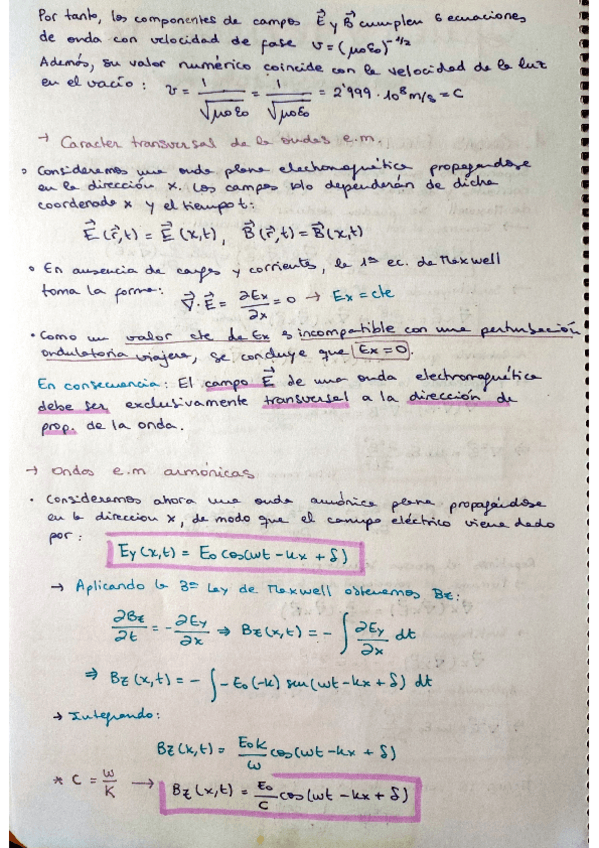 Por tanto, los componentes de campos E⃗ y B⃗ cumplen 6 ecuaciones
de onda con velocidad de fase v = (μ0ε0)^-1/2
Además, su valor numérico coincide con la velocidad de la luz
en el vacío: v = 1/√μ0ε0 = 1/√μ0ε0 = 2'999 · 10^8 m/s = c
→ Caracter transversal de la ondas e.m.
◦ Consideremos una onda plana electromagnética propagandose
en la dirección x. Los campos solo dependerán de dicha
coordenada x y el tiempo t:
E⃗ (r⃗,t) = E⃗ (x,t), B⃗(r⃗,t) = B⃗(x,t)
• En ausencia de cargas y corrientes, la 1ª ec. de Maxwell
toma la forma: ∇⃗·E⃗ = ∂Ex/∂x = 0 → Ex = cte
• Como un valor cte de Ex es incompatible con una perturbación
ondulatoria viajera, se concluye que Ex = 0.
En consecuencia: El campo E⃗ de una onda electromagnética
debe ser exclusivamente transversal a la dirección de
prop. de la onda.
→ Ondas e.m armónicas
• Consideremos ahora una onda armónica plana propagándose
en la direccion x, de modo que el campo eléctrico viene dado
por: Ey (x,t) = E0 cos(ωt - kx + δ)
→ Aplicando la 3ª Ley de Maxwell obtenemos Bz:
∂Bz/∂t = - ∂Ey/∂x ⇒ Bz(x,t) = - ∫ ∂Ey/∂x dt
⇒ Bz (x,t) = - ∫ -E0 (-k) sen(ωt - kx + δ) dt
→ Integrando:
Bz (x,t) = E0k/ω cos(ωt - kx + δ)
* C = ω/K → Bz (x,t) = E0/C cos(ωt - kx + δ)